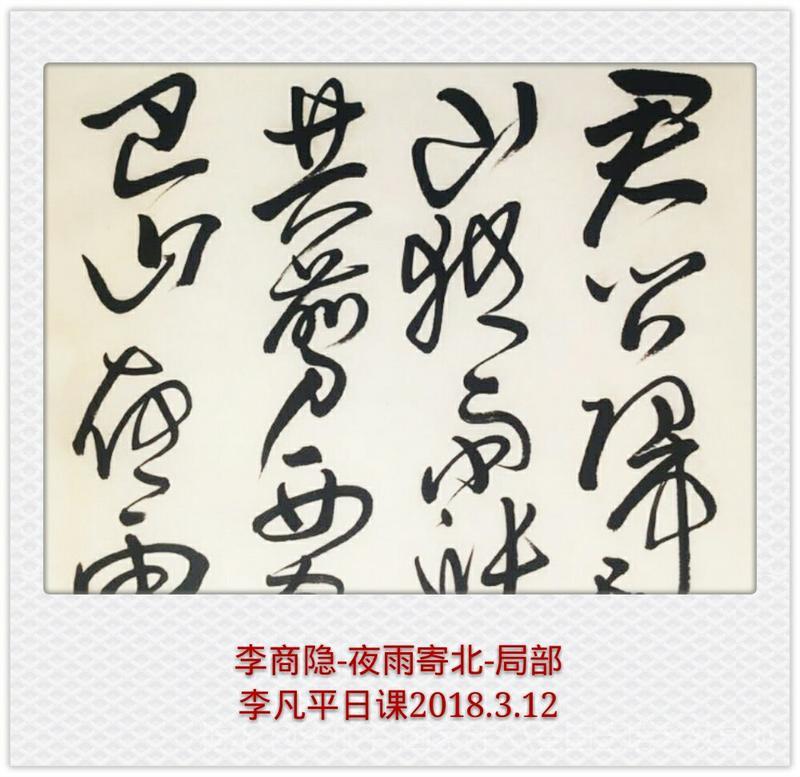 君問歸
山夜雨漲
共剪西
巴山夜雨
李商隐-夜雨寄北-局部
李凡平日课2018.3.12